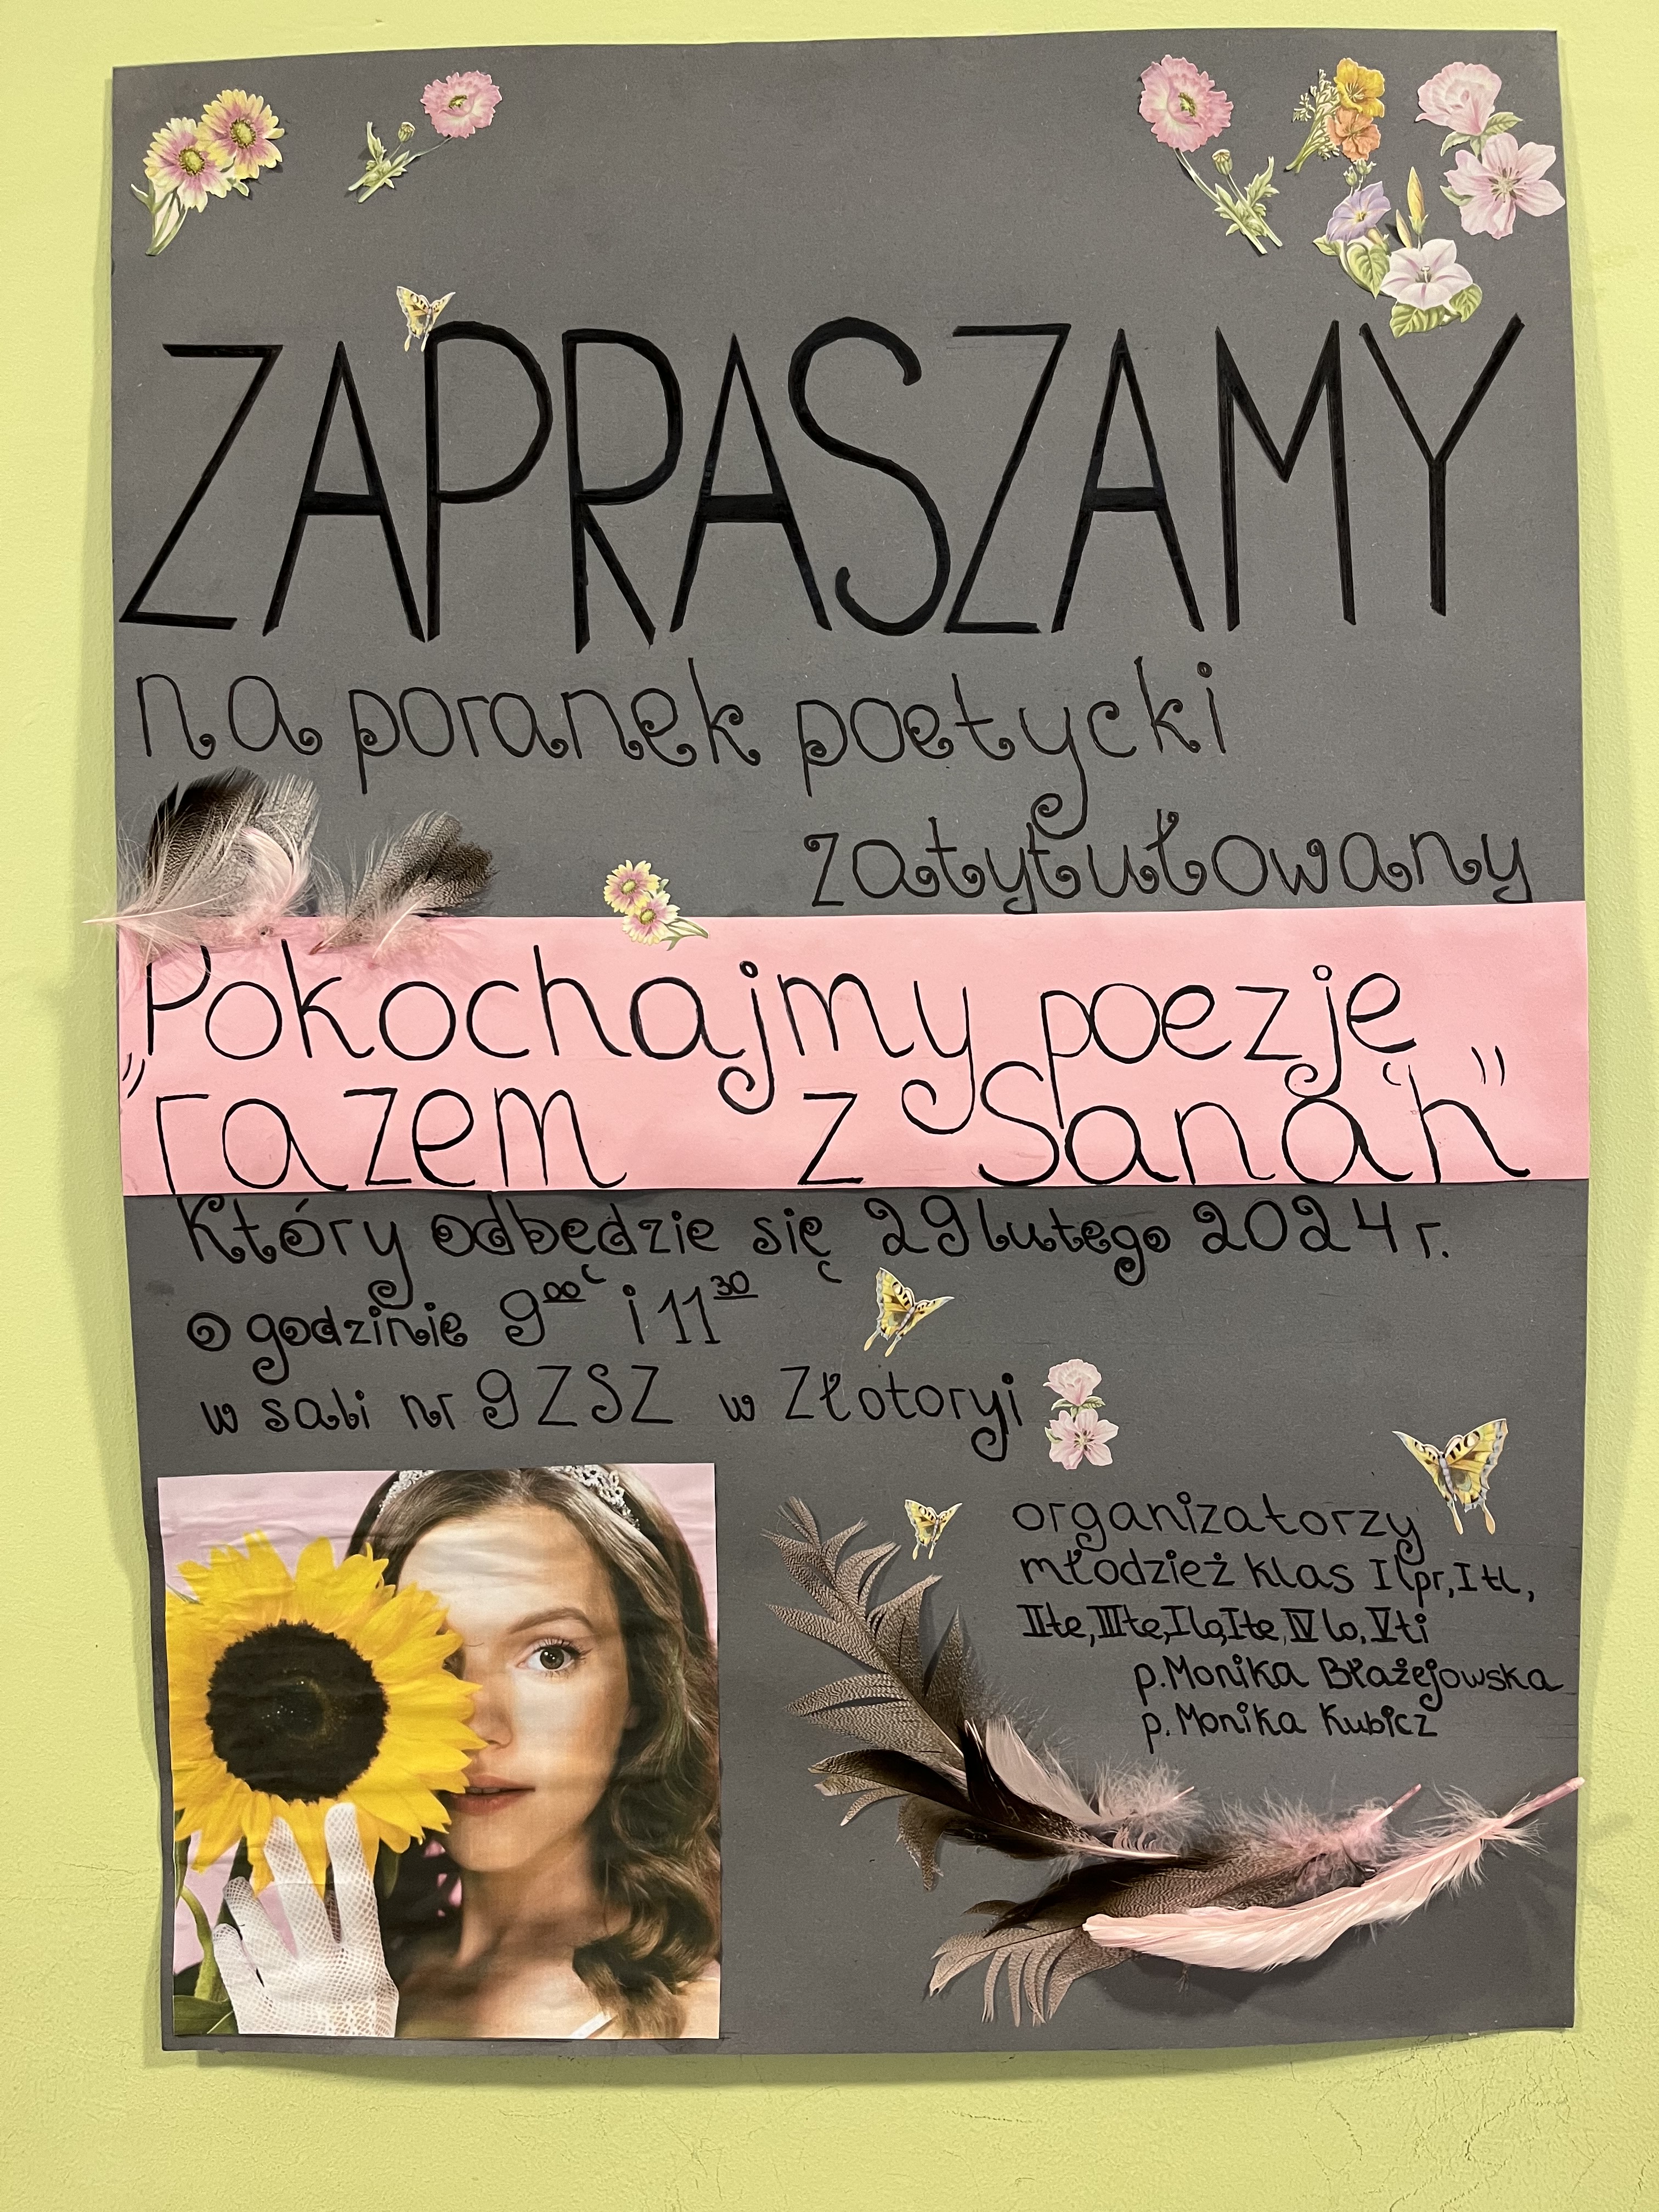 ZAPRASZAMY
na poranek poetycki
zatytułowany
„Pokochajmy poezję
razem z Sanah”
Który odbędzie się 29 lutego 2024 r.
o godzinie 9⁰⁰ i 11³⁰
w sali nr 9 ZSZ w Złotoryi
organizatorzy
młodzież klas I lpr, I tl,
II te, III te, I lo, I te, IV lo, V ti
p. Monika Błażejowska
p. Monika Kubicz